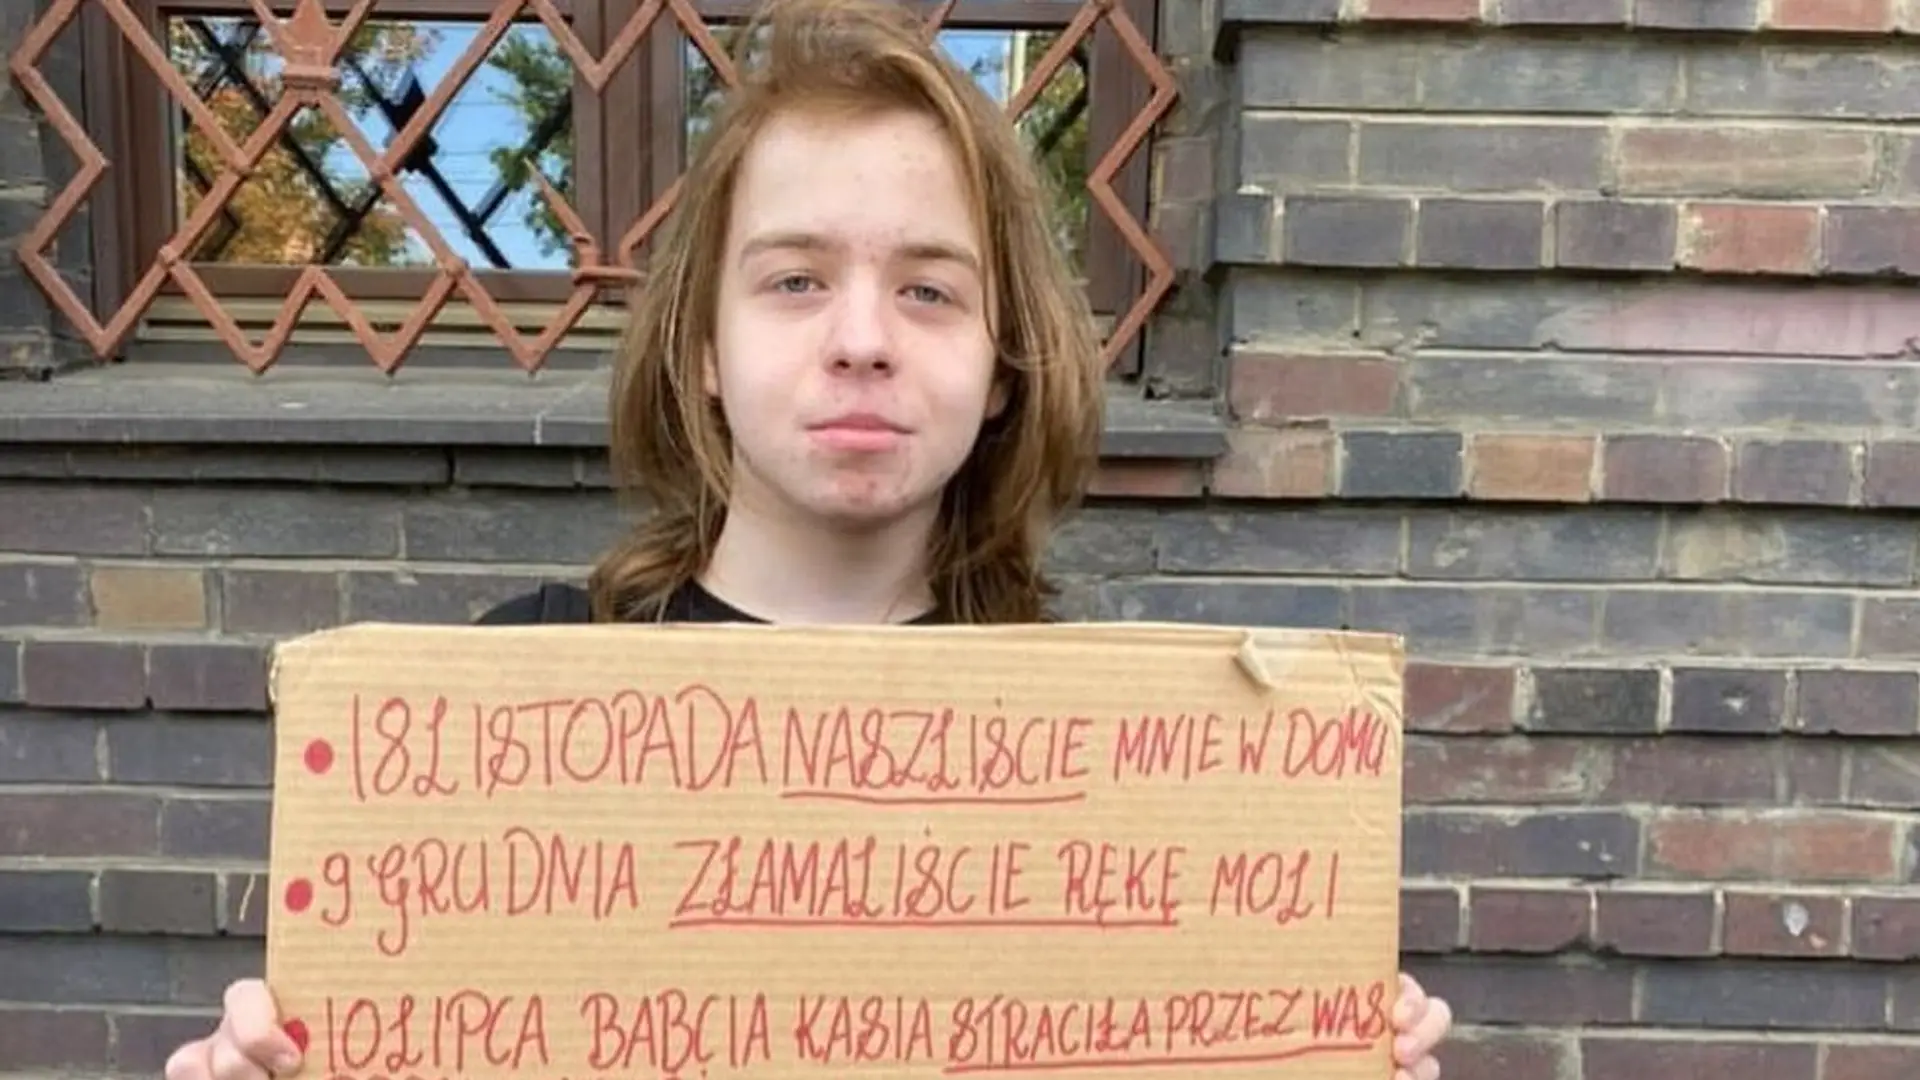 • 18 LISTOPADA NASZLIŚCIE MNIE W DOMU
• 9 GRUDNIA ZŁAMALIŚCIE RĘKĘ MOLI
• 10 LIPCA BABCIA KASIA STRACIŁA PRZEZ WAS